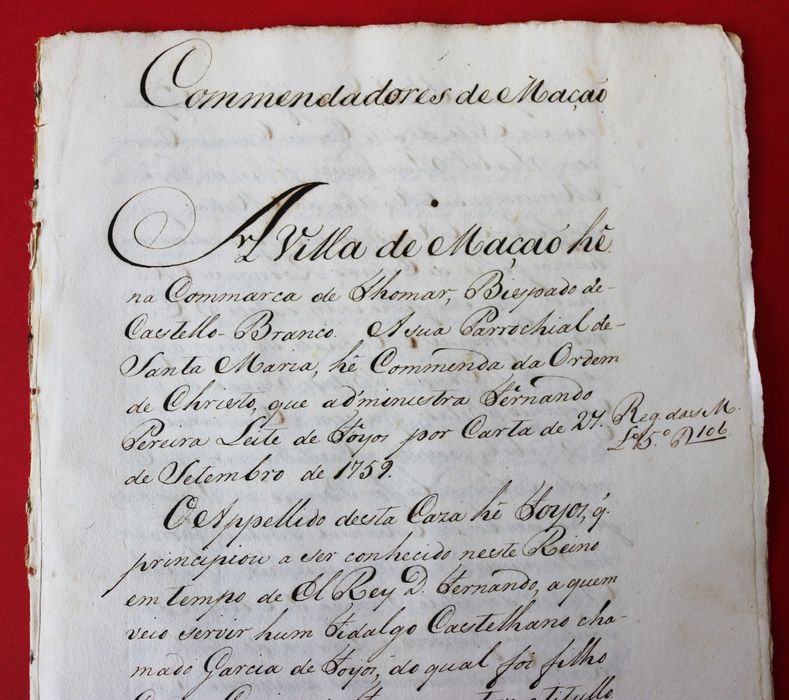 Commendadores de Mação
A Villa de Mação hé
na Commarca de Thomar, Bispado de-
Castello-Branco. A sua Parrochial de-
Santa Maria, hé Commenda da Ordem
de Christo, que administra Fernando
Pereira Leite de Foyos por Carta de 27.
de Setembro de 1759.
Reg. das M.
Lo. 5.o 106
O Appellido desta Caza hé Foyos, q.
principiou a ser conhecido neste Reino
em tempo de El Rey D. Fernando, a quem
veio servir hum Fidalgo Castelhano cha-
mado Garcia de Foyos, do qual foi filho